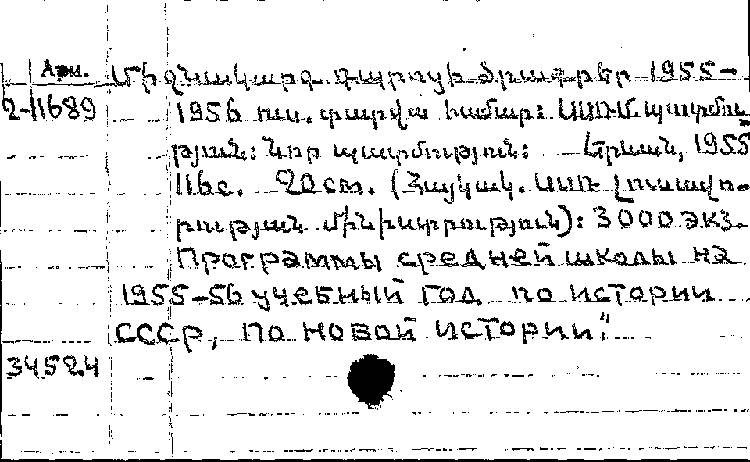 Арм. Միջնակարգ դպրոցի ծրագրեր 1955-
2-11689 1956 ուս. տարվա համար: ՍՍՌՄ պատմու
թյան: Նոր պատմություն: Երևան, 1955
116с. 20 см. (Հայկակ. ՍՍՌ լուսավո-
րության մինիստրություն): 3000 экз.
Программы средней школы на
1955-56 учебный год по истории
СССР, по новой истории".
34524